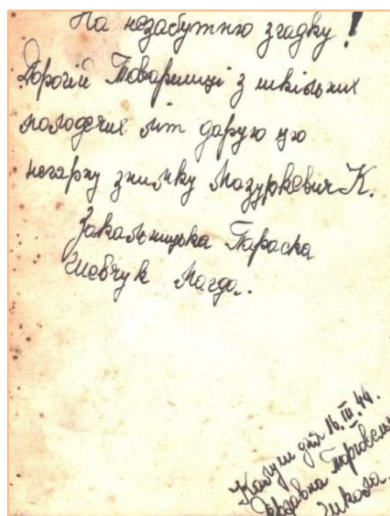 На незабутню згадку!
Дорогій Товаришці з шкільних
молодечих літ дарую цю
негарну знимку Мазуркевич К.
Закальницька Параска
Шевчук Магда.
Калуш дня 16.III.44.
Державна Торговельна
Школа.